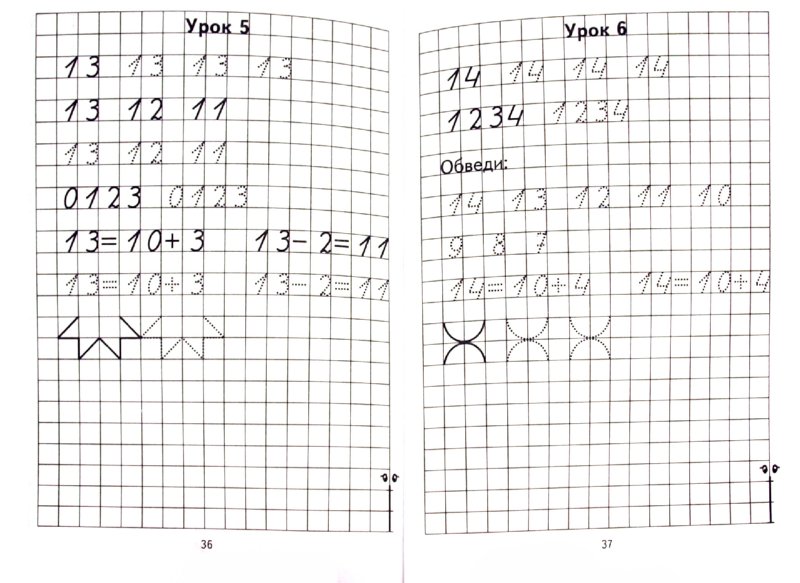 Урок 5
13 13 13 13
13 12 11
13 12 11
0123 0123
13=10+3 13-2=11
13=10+3 13-2=11
36
Урок 6
14 14 14 14
1234 1234
Обведи:
14 13 12 11 10
9 8 7
14=10+4 14=10+4
37